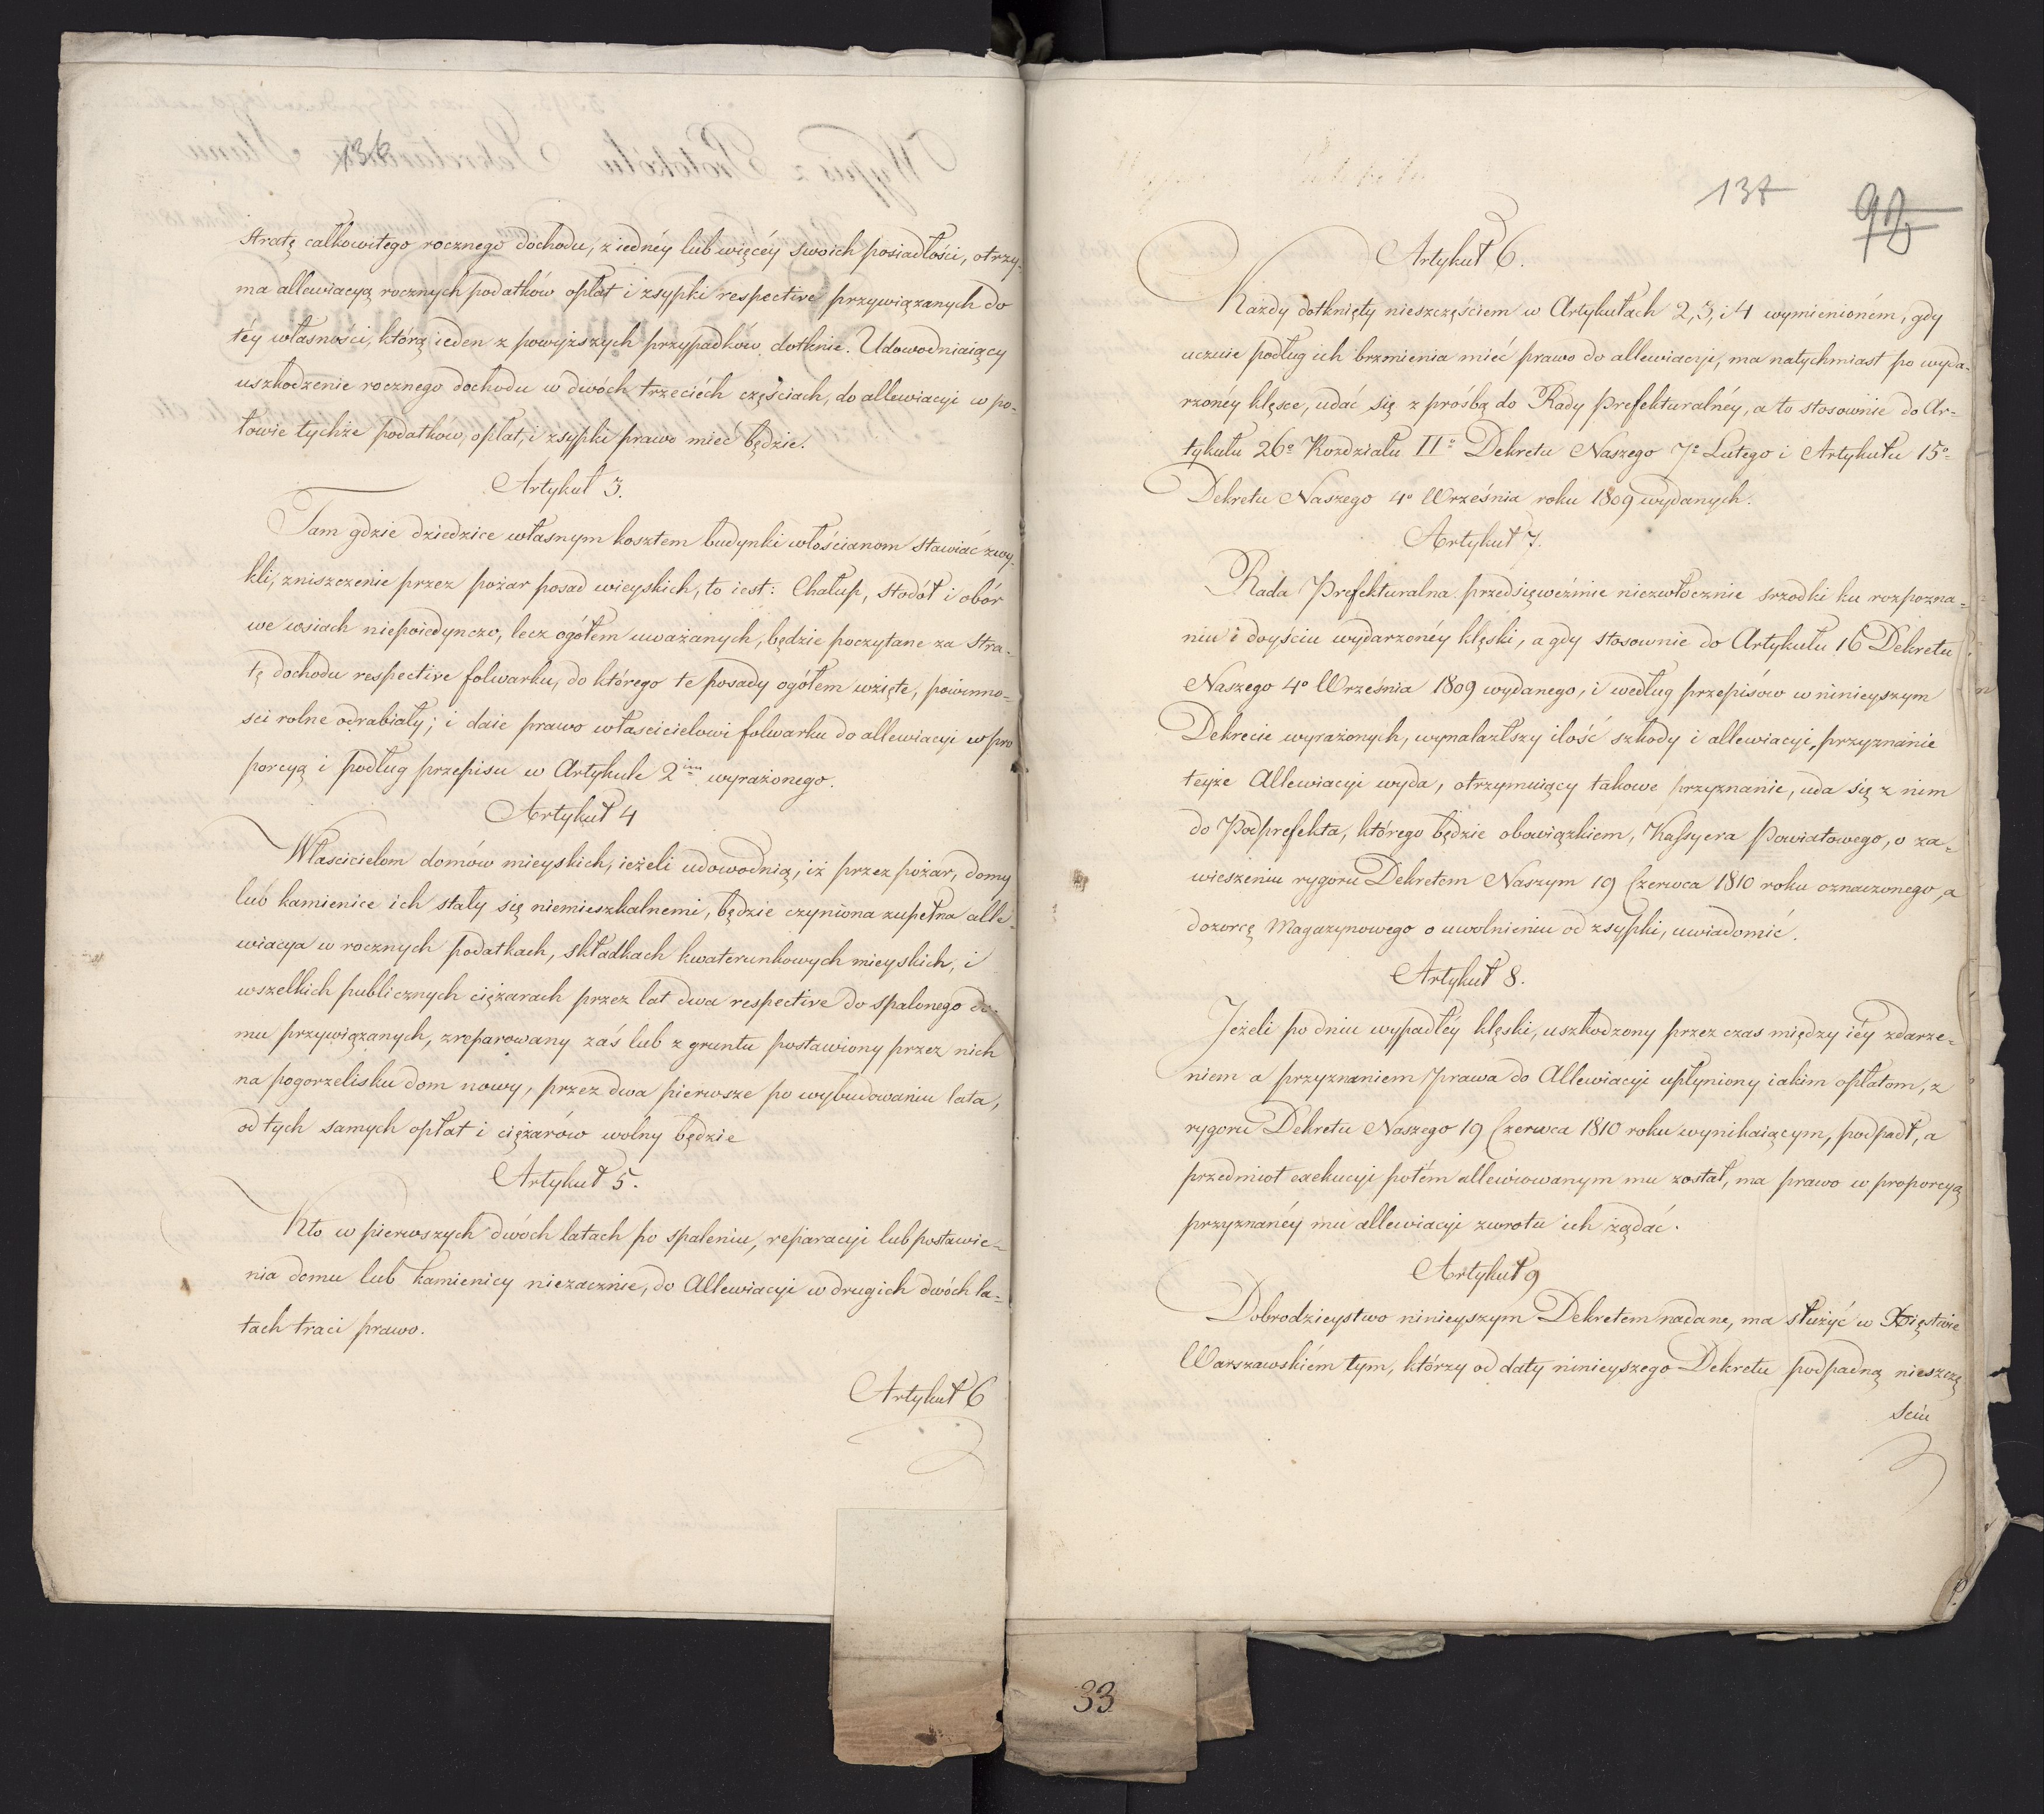 136
stratę całkowitego rocznego dochodu, z iednéy lub więcéy swoich posiadłości, otrzy-
ma allewiacyą rocznych podatków opłat i zsypki respective przywiązanych do
téy własności, którą ieden z powyższych przypadków dotknie. Udowodniaiący
uszkodzenie rocznego dochodu w dwóch trzeciéch częściach, do allewiacyi w po-
łowie tychże podatkow, opłat, i zsypki prawo mieć będzie.
Artykuł 3.
Tam gdzie dziedzice własnym kosztem budynki włościanom stawiać zwy-
kli, zniszczenie przez pożar posad wieyskich, to iest: Chałup, stodół i obór
we wsiach niepoiedynczo, lecz ogółem uważanych, będzie poczytane za stra-
tę dochodu respective folwarku, do którego te posady ogółem wzięte, powinno-
sci rolne odrabiały; i daie prawo własciciełowi folwarku do allewiacyi w pro
porcyą i podług przepisu w Artykule 2im wyrażonego.
Artykuł 4
Własciciełom domów mieyskich, ieżeli udowodnią, iż przez pożar, domy
lub kamienice ich stały się niemieszkalnemi, będzie czyniona zupełna alle-
wiacya w rocznych podatkach, składkach kwaterunkowych mieyskich, i
wszelkich publicznych ciężarach przez lat dwa respective do spalonego do-
mu przywiązanych, zreparowany zaś lub z gruntu postawiony przez nich
na pogorzelisku dom nowy, przez dwa pierwsze po wybudowaniu lata,
od tych samych opłat i ciężarów wolny będzie
Artykuł 5.
Kto w pierwszych dwóch latach po spaleniu, reparacyi lub postawie-
nia domu lub kamienicy niezacznie, do Allewiacyi w drugich dwóch la-
tach traci prawo.
Artykuł 6
137
Artykuł 6.
Każdy dotknięty nieszczęściem w Artykułach 2, 3, i 4 wymienioném, gdy
uczuie podług ich brzmienia mieć prawo do allewiacyi, ma natychmiast po wyda-
rzonéy klęsce, udać się z proźbą do Rady Prefekturalnéy, a to stosownie do Ar-
tykułu 26o Rozdziału IIo Dekretu Naszego 7o Lutego i Artykułu 15o
Dekretu Naszego 4o Września roku 1809 wydanych.
Artykuł 7.
Rada Prefekturalna przedsięweźmie niezwłocznie srzodki ku rozpozna-
niu i doyściu wydarzonéy klęski, a gdy stosownie do Artykułu 16 Dekretu
Naszego 4o Września 1809 wydanego, i według przepisów w ninieyszym
Dekrecie wyrażonych, wynalazłszy ilość szkody i allewiacyi, przyznanie
teyże Allewiacyi wyda, otrzymuiący takowe przyznanie, uda się z nim
do Podprefekta, którego będzie obowiązkiem, Kassyera Powiatowego, o za-
wieszeniu rygoru Dekretem Naszym 19 Czerwca 1810 roku oznaczonego, a
dozorcę Magazynowego o uwolnieniu od zsypki, uwiadomić.
Artykuł 8.
Jeżeli po dniu wypadłéy klęski, uszkodzony przez czas między iéy zdarze-
niem a przyznaniem prawa do Allewiacyi upłyniony iakim opłatom, z
rygoru Dekretu Naszego 19 Czerwca 1810 roku wynikaiącym, podpadł, a
przedmiot exekucyi potém allewiowanym mu został, ma prawo w proporcyą
przyznanéy mu allewiacyi zwrotu ich żądać.
Artykuł 9
Dobrodzieystwo ninieyszym Dekretem nadane, ma służyć w Xięstwie
Warszawskiém tym, którzy od daty ninieyszego Dekretu podpadną nieszczę
sciu
33